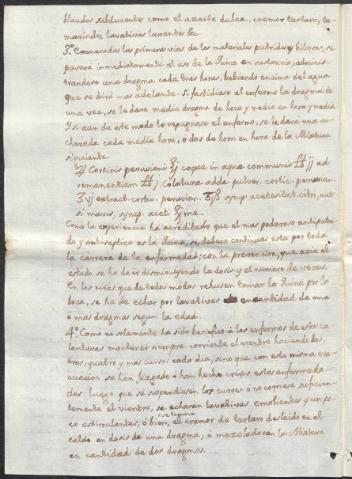 blandos subducentes como el azeite dulce, cremor tartaro, ta-
marindos, lavativas laxantes &c.
3.º Exoneradas las primeras vias de los materiales putridos y biliosos, se
pasará inmediatamente al uso de la Quina en sustancia, adminis-
trandose una dragma cada tres horas, bebiendo encima del agua
que se dirá mas adelante. Si fastidiase el enfermo la dragma de
una vez, se le dara media dragma de hora y media en hora y media
Y si aun de este modo le repugnase el enfermo, se le dara una cu-
charada cada media hora, ó dos de hora en hora de la Mixtura
siguiente.
Corticis peruviani coque in aqua communis ad
remanentiam colatura adde pulver. cortic. peruvian.
extract. cortic. peruvian. syrup. acetositat. citri, aut
si mavis, syrup. acet. me.
Como la experiencia ha acreditado que el mas poderoso antiputrido
y antiseptico es la Quina, se debera continuar esta por toda
la carrera de la enfermedad; con la precision, que acia el
estado se ha de ir disminuyendo la dosis y el numero de veces.
En los niños que de todos modos rehusen tomar la Quina por la
boca, se ha de echar por lavativas en cantidad de una
ó mas dragmas segun la edad.
4.º Como no solamente ha sido benefico á los enfermos de estas ca-
lenturas mantener siempre corriente el vientre haciendo dos,
tres, quatro y mas cursos cada dia, sino que con esta misma eva-
cuacion se han juzgado ó han hecho crisis estas enfermeda-
des: luego que se suspendiesen los cursos ó no corriera suficien-
temente el vientre, se echarán lavativas emolientes y un po-
co estimulantes, ó bien, el cremor de tartaro desleido en el
caldo en dosis de una dragma, ó mezclado con la Mixtura
en cantidad de dos dragmas.